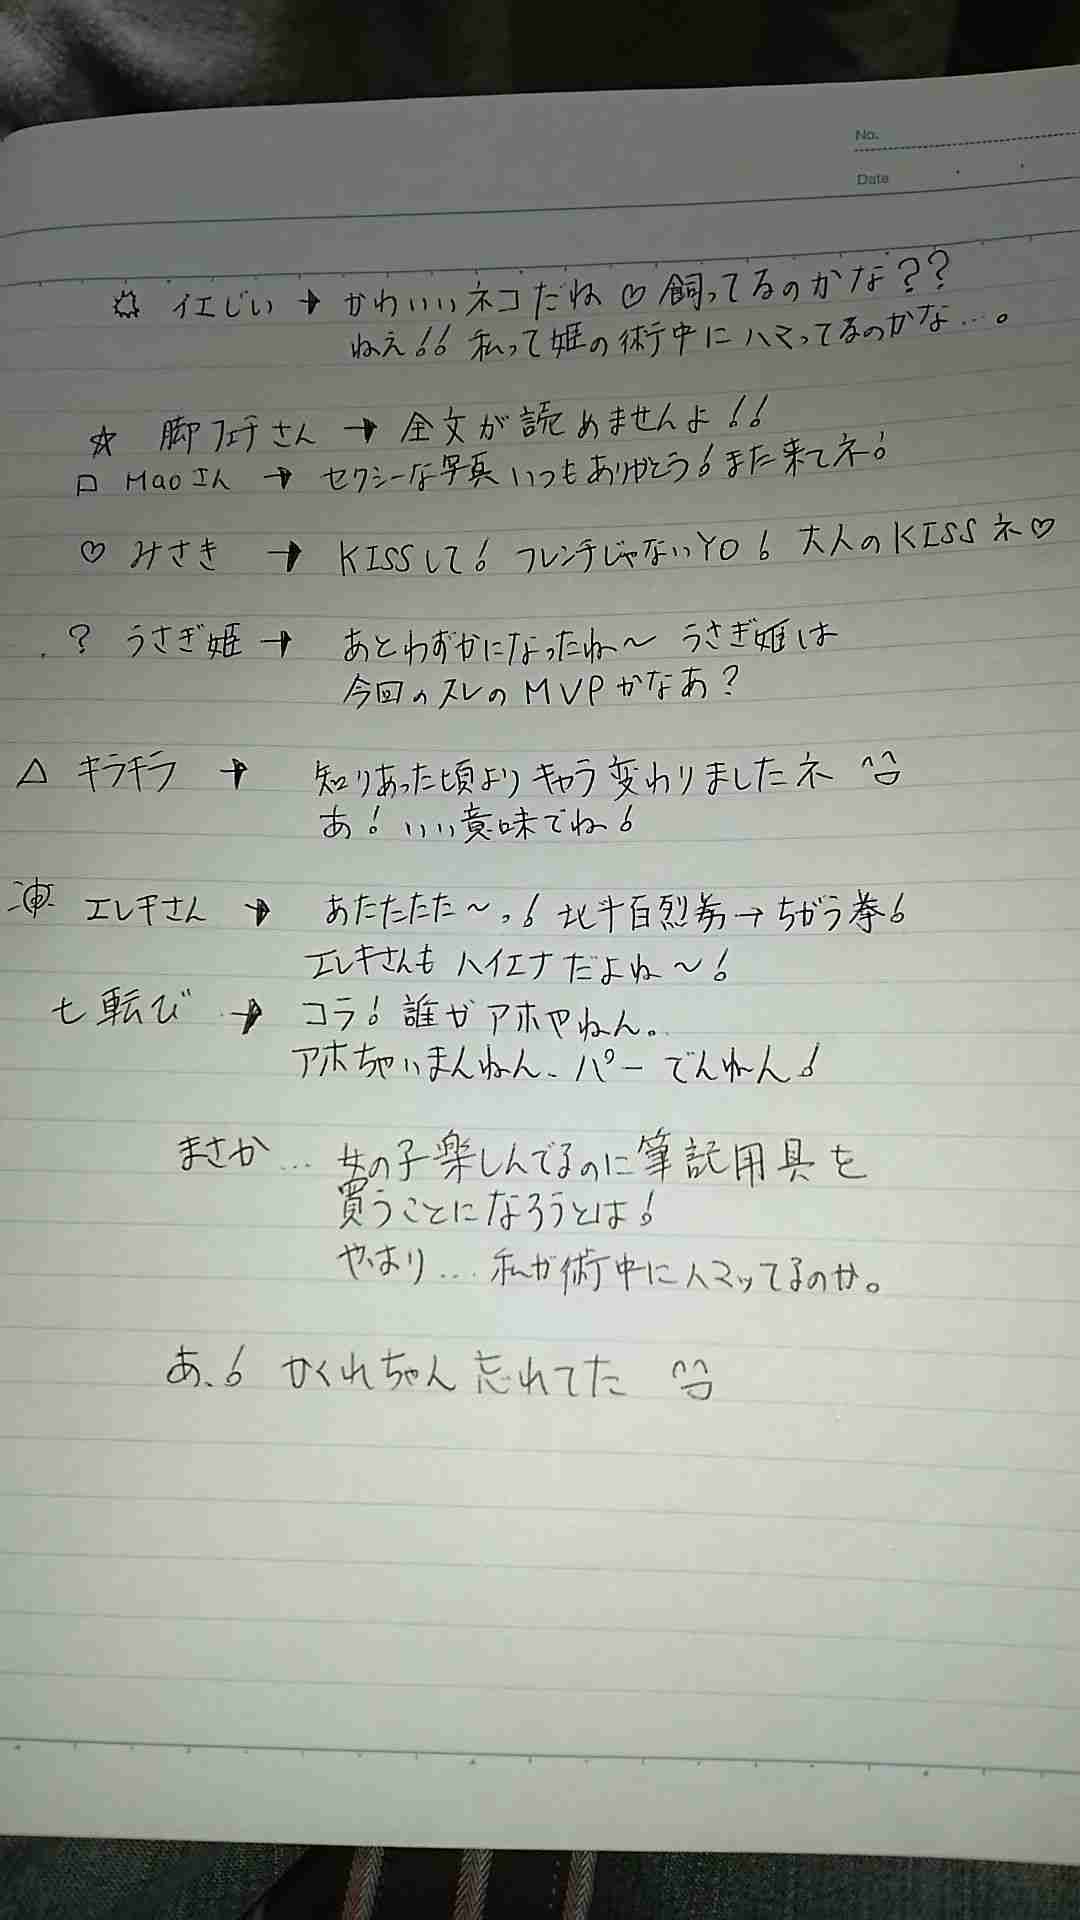 No.
Date
イエじい → かわいいネコだね♡飼ってるのかな??
ねえ!!私って姫の術中にハマってるのかな…。
☆ 脚フェチさん → 全文が読めませんよ!!
□ Maoさん → セクシーな写真いつもありがとう!また来てネ!
♡ みさき → KISSして!フレンチじゃないYO!大人のKISSネ♡
? うさぎ姫 → あとわずかになったね〜 うさぎ姫は
今回のスレのMVPかなあ?
△ キラキラ → 知りあった頃よりキャラ変わりましたネ ^^
あ!いい意味でね!
エレキさん → あたたたた〜っ!北斗百烈券→ちがう拳!
エレキさんもハイエナだよね〜!
七転び → コラ!誰がアホやねん。
アホちゃいまんねん、パーでんねん!
まさか… 女の子楽しんでるのに筆記用具を
買うことになろうとは!
やはり…私が術中にハマッてるのか。
あ、!かくれちゃん忘れてた ^^